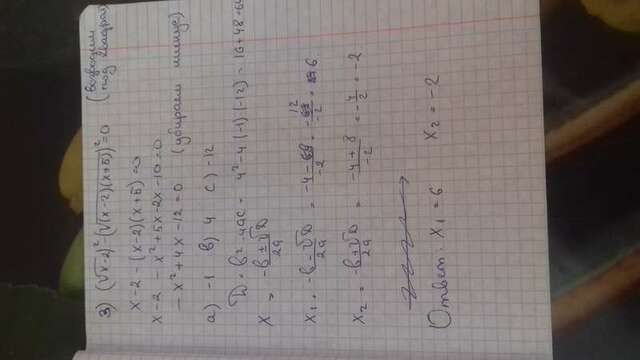 3) (√x-2)² - (√(x-2)(x+5))² = 0 (возводим под квадрат)
x - 2 - (x-2)(x+5) = 0
x - 2 - x² + 5x - 2x - 10 = 0
- x² + 4x - 12 = 0 (убираем минус)
a) -1 b) 4 c) -12
D = b² - 4ac = 4² - 4·(-1)·(-12) = 16 + 48 = 64
x = -b ± √D / 2a
x₁ = -b - √D / 2a = -4 - 8 / -2 = -12 / -2 = 6
x₂ = -b + √D / 2a = -4 + 8 / -2 = -4/2 = -2
Ответ: x₁ = 6 x₂ = -2